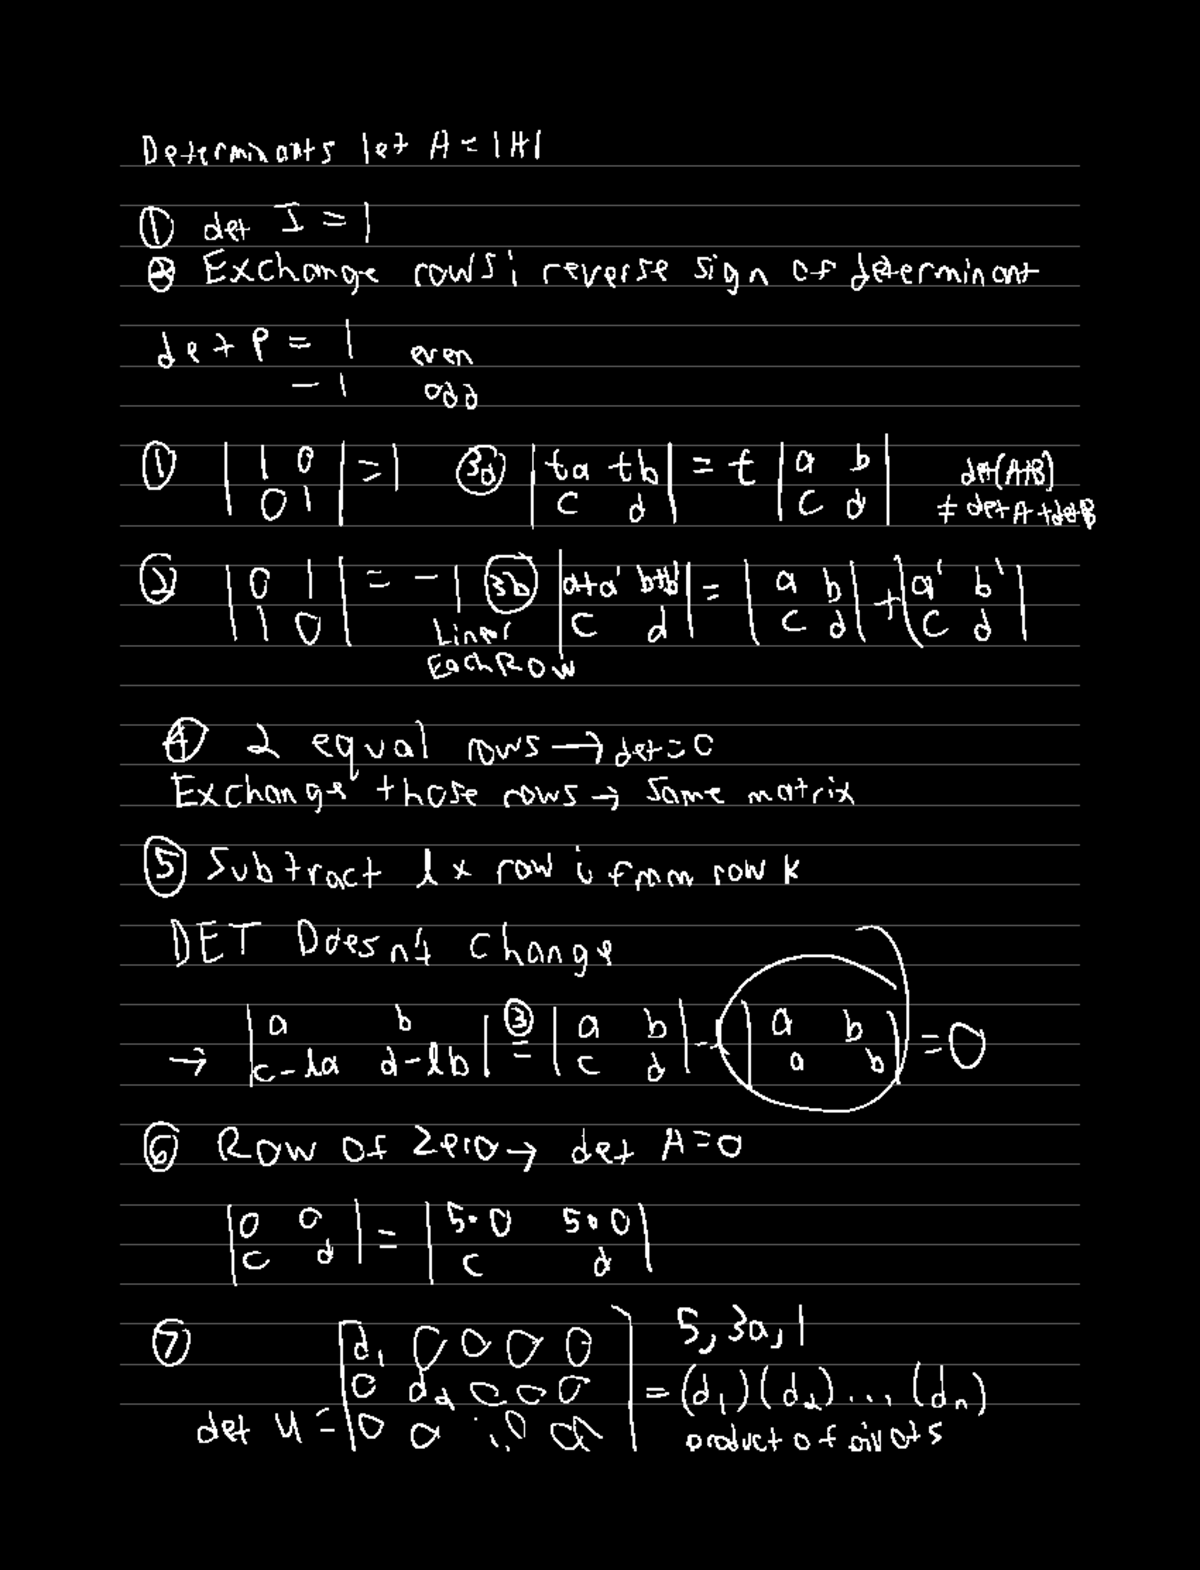 Determinants let A = |A|
① det I = 1
② Exchange rows; reverse sign of determinant
det P = 1 even
-1 odd
① |1 0| = 1 ③a |ta tb| = t |a b| det(A+B)
|0 1| |c d| |c d| ≠ det A + det B
② |0 1| = -1 ③b |a+a' b+b'| = |a b| + |a' b'|
|1 0| Linear |c d| |c d| |c d|
Each Row
④ 2 equal rows → det = 0
Exchange those rows → same matrix
⑤ Subtract l x row i from row k
DET Doesn't change
→ |a b| ③= |a b| - l |a b| = 0
|c-la d-lb| |c d| |a b|
⑥ Row of Zero → det A = 0
|0 0| = |5·0 5·0|
|c d| |c d|
⑦ |d₁ 0 0 0 0| 5, 3a, 1
|0 d₂ 0 0 0| = (d₁)(d₂)...(dₙ)
det U = |0 0 product of pivots